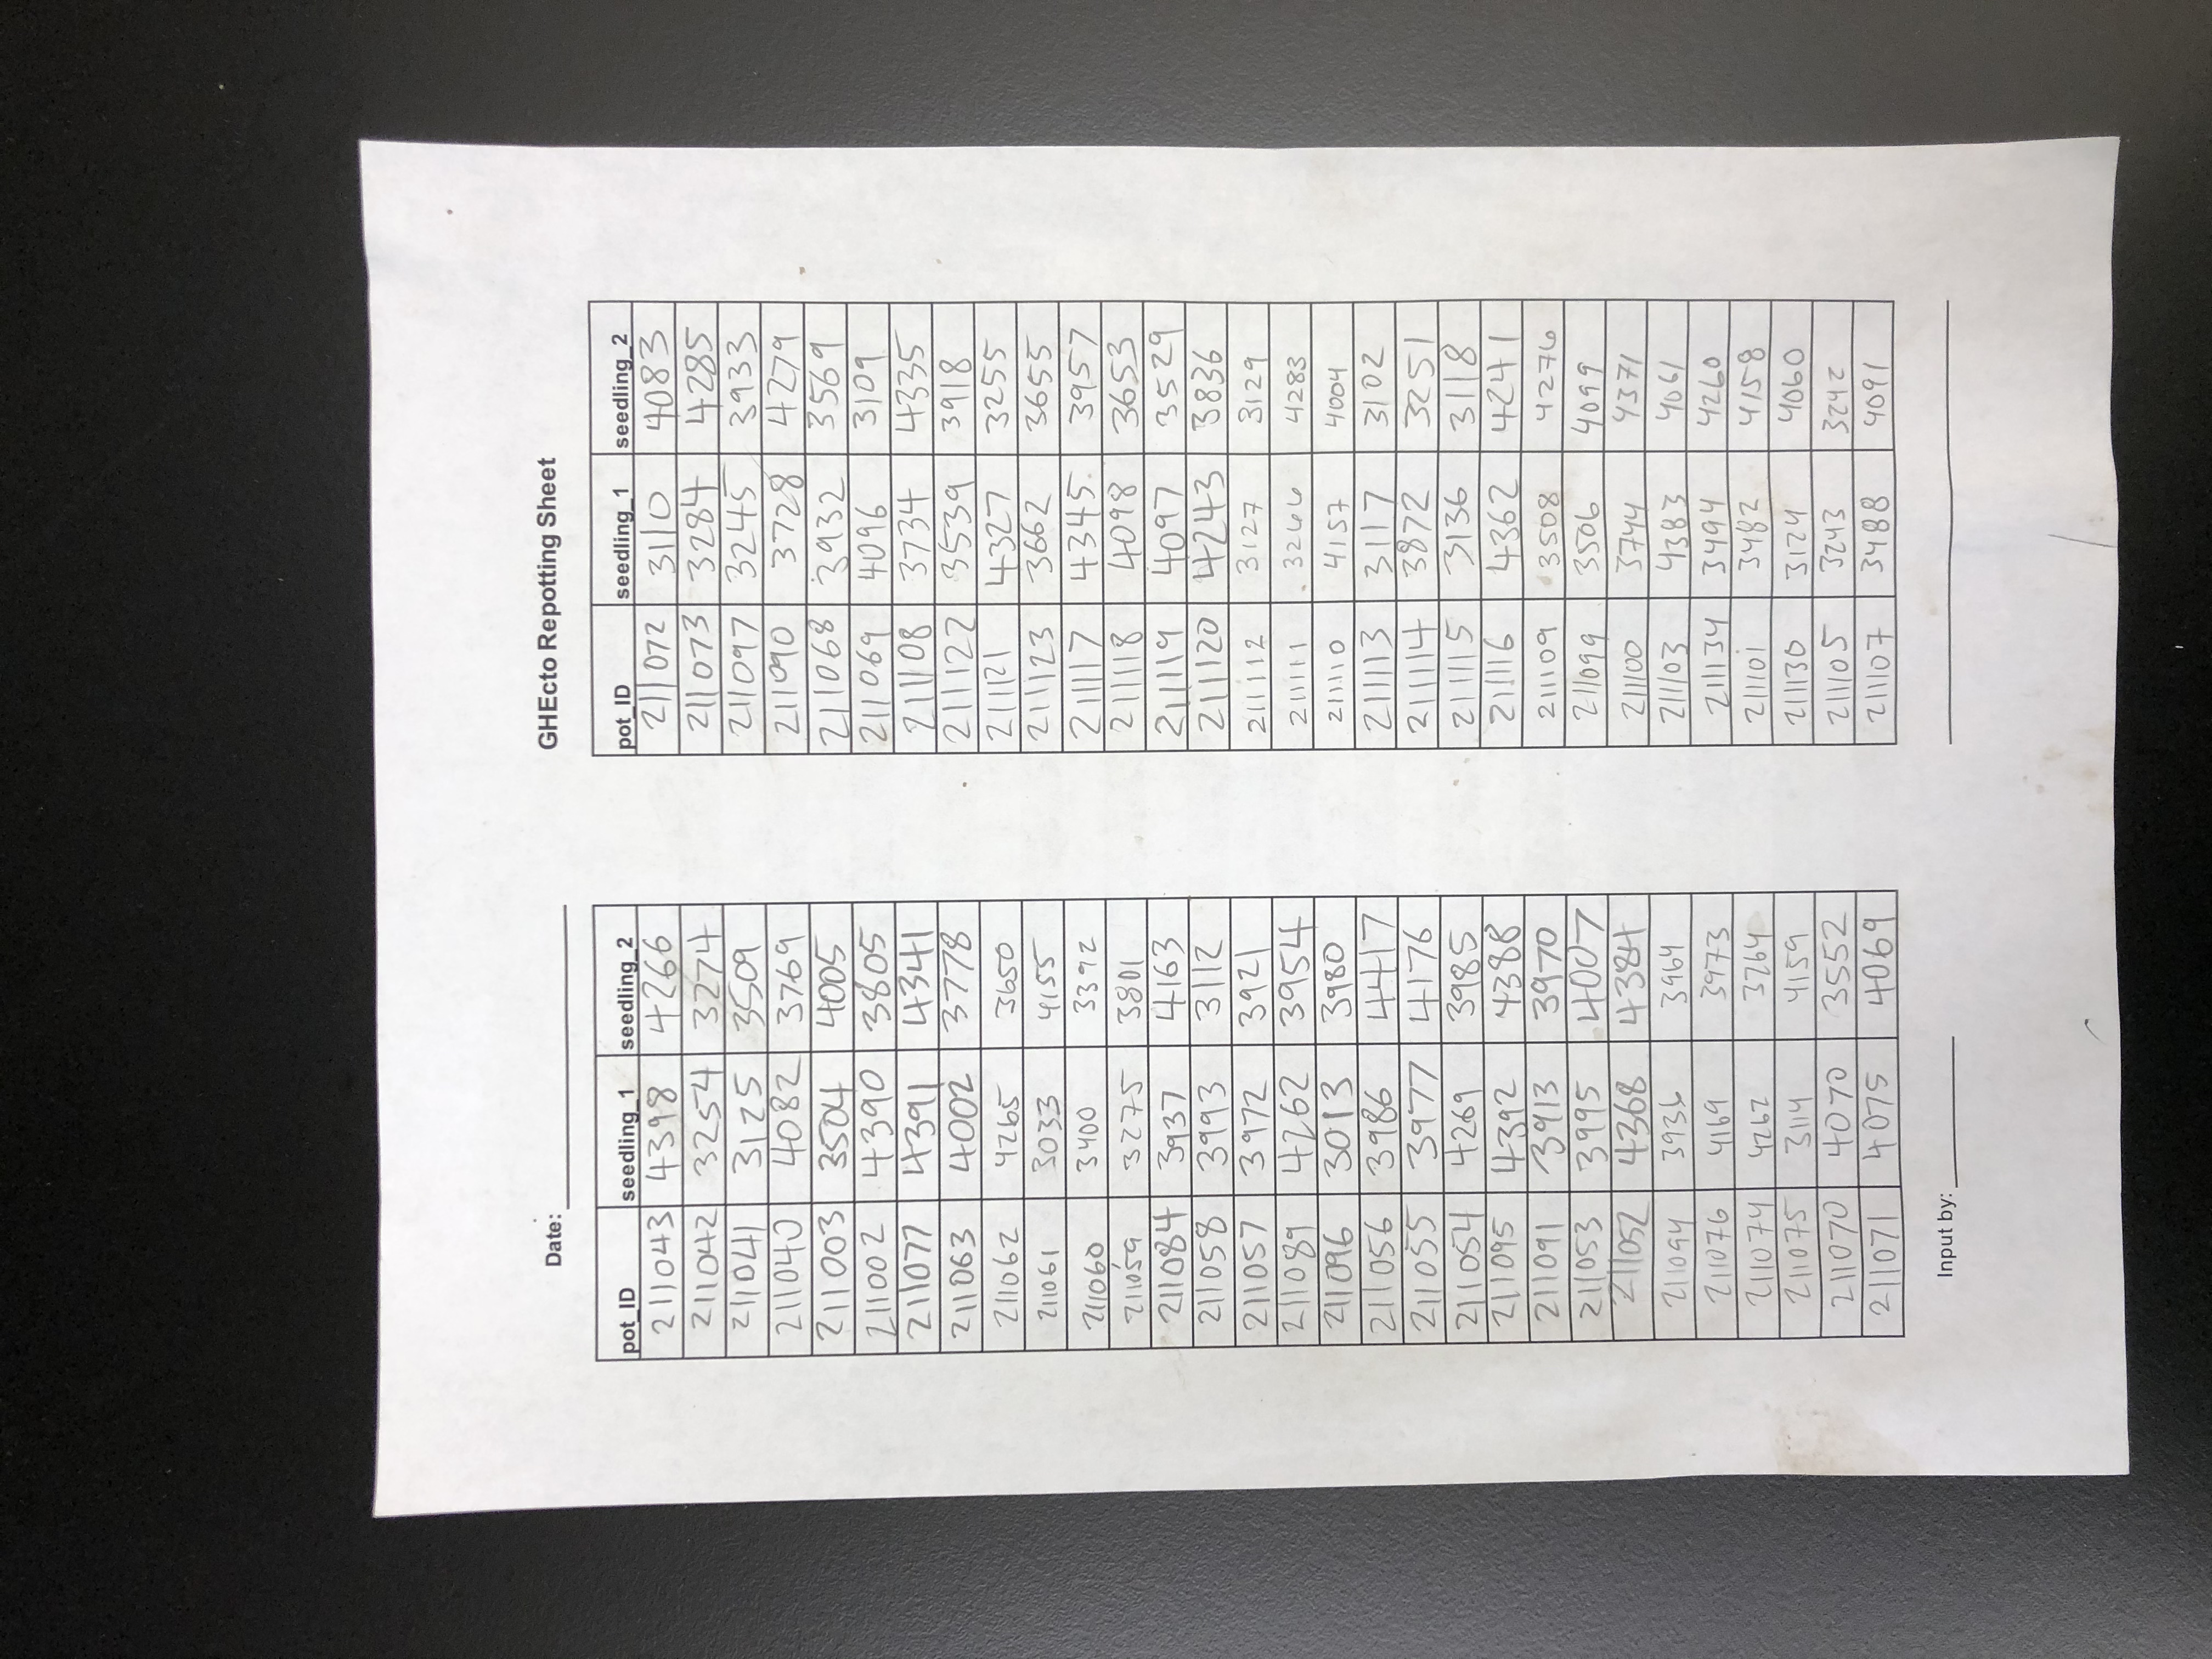 Date:
pot_ID seedling_1 seedling_2
211043 4398 4266
211042 3254 3274
211041 3125 3509
211040 4082 3769
211003 3504 4005
211002 4390 3805
211077 4391 4341
211063 4002 3778
211062 4265 3650
211061 3033 4155
211060 3400 3392
211059 3275 3801
211084 3937 4163
211058 3993 3112
211057 3972 3921
211089 4262 3954
211096 3013 3980
211056 3986 4417
211055 3977 4176
211054 4269 3985
211095 4392 4388
211091 3913 3970
211053 3995 4007
211052 4368 4384
211094 3936 3964
211076 4169 3973
211074 4262 3264
211075 3114 4159
211070 4070 3552
211071 4075 4069
Input by:
GHEcto Repotting Sheet
pot_ID seedling_1 seedling_2
211072 3110 4083
211073 3284 4285
211097 3245 3933
211090 3728 4279
211068 3932 3569
211069 4096 3109
211108 3734 4335
211122 3539 3918
211121 4327 3255
211123 3662 3655
211117 4345 3957
211118 4098 3653
211119 4097 3529
211120 4243 3836
211112 3127 3129
211111 3266 4283
211110 4157 4004
211113 3117 3102
211114 3872 3251
211115 3136 3118
211116 4362 4241
211109 3508 4276
211099 3506 4099
211100 3744 4371
211103 4383 4061
211134 3494 4260
211101 3482 4158
211130 3124 4060
211105 3243 3242
211107 3488 4091